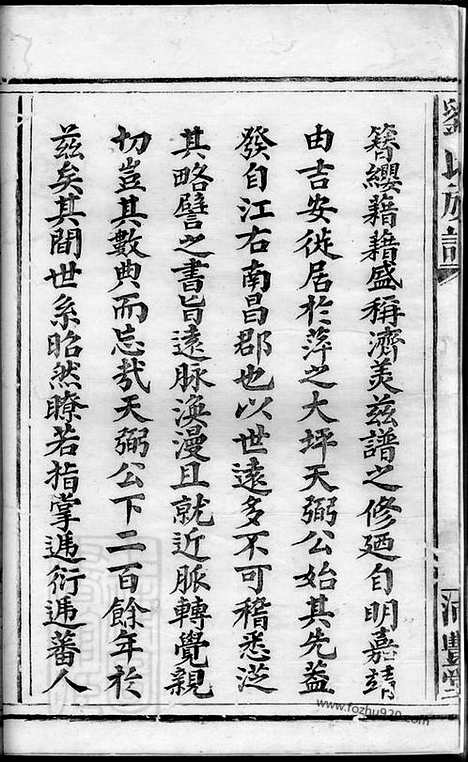 劉氏族譜
簪纓藉藉盛稱濟美茲譜之修廼自明嘉靖
由吉安徙居於萍之大坪天弼公始其先葢
發自江右南昌郡也以世遠多不可稽悉泛
其略譬之書旨遠脉渙漫且就近脈轉覺親
切豈其數典而忘㢤天弼公下二百餘年於
茲矣其間世系昭然瞭若指掌遞衍遞蕃人
www.fozhu920.com